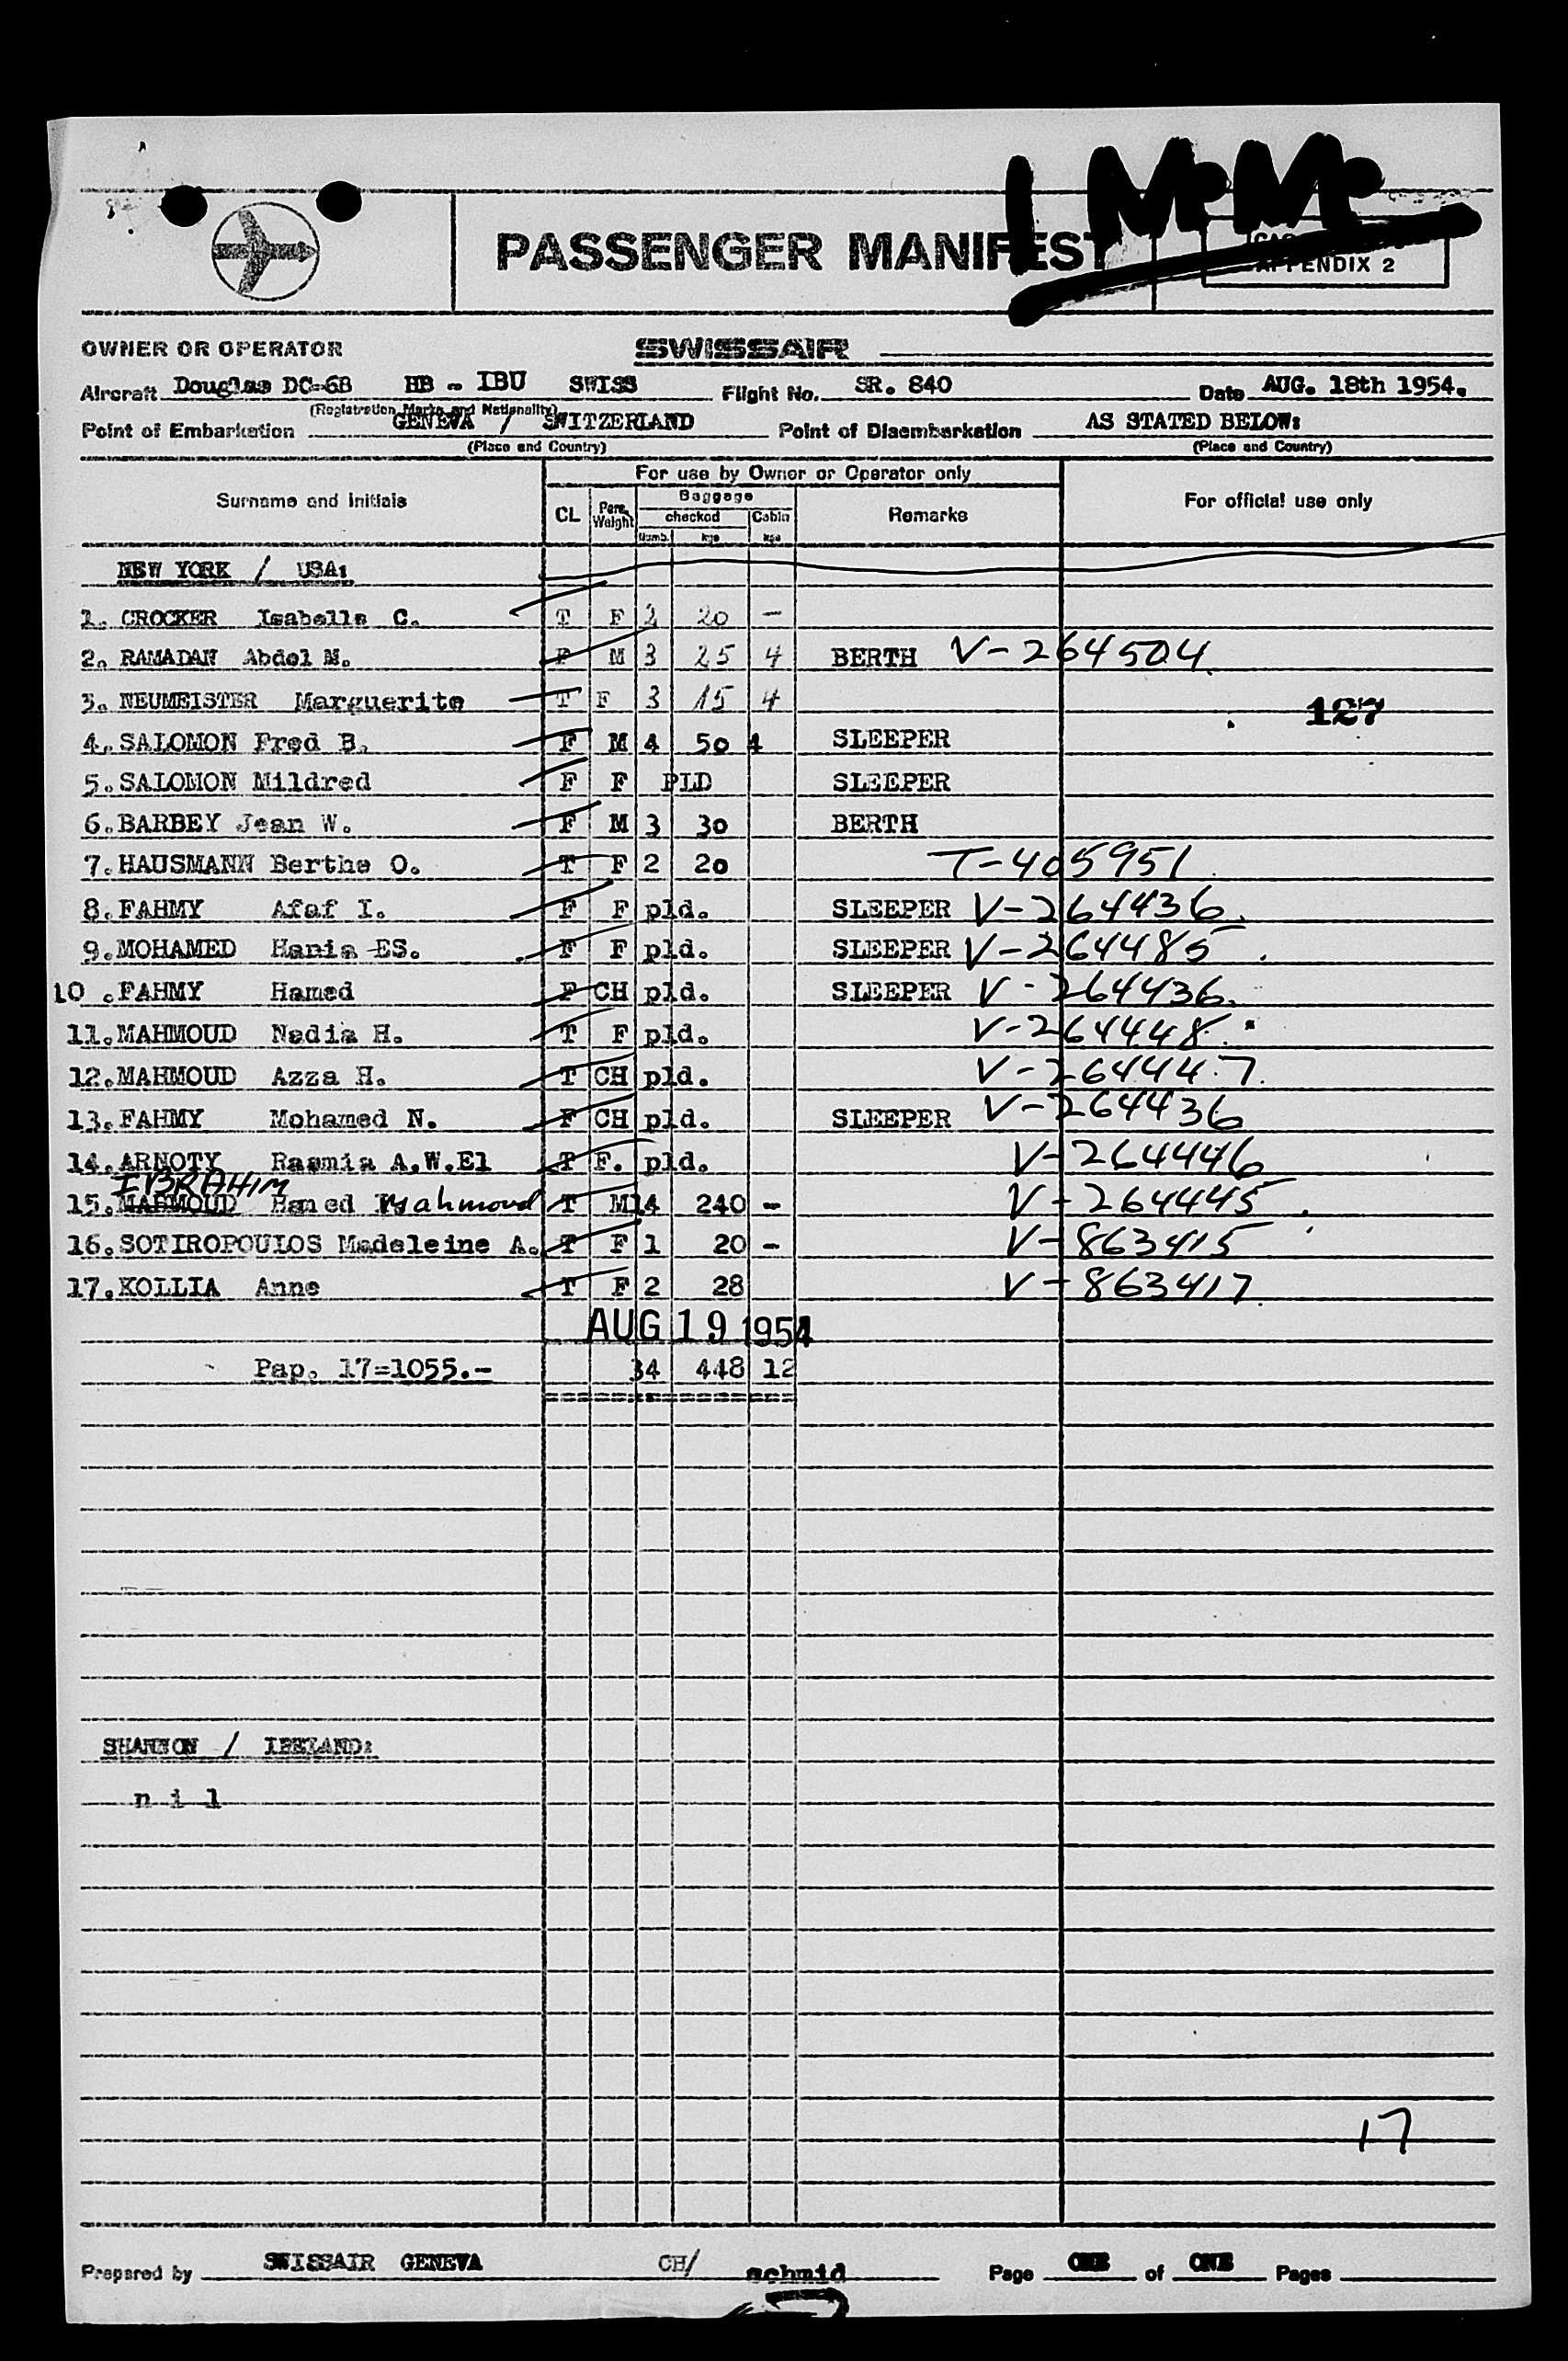 1 M.M.
PASSENGER MANIFEST
APPENDIX 2
OWNER OR OPERATOR SWISSAIR
Aircraft Douglas DC-6B HB - IBU SWISS Flight No. SR. 840 Date AUG. 18th 1954.
(Registration Marks and Nationality)
Point of Embarkation GENEVA / SWITZERLAND Point of Disembarkation AS STATED BELOW:
(Place and Country) (Place and Country)
For use by Owner or Operator only
Surname and initials CL Pers. Weight Baggage checked Cabin Remarks For official use only
Numb. kgs kgs
NEW YORK / USA:
1. CROCKER Isabella C. T F 2 20 -
2. RAMADAN Abdel M. F M 3 25 4 BERTH V-264504
3. NEUMEISTER Marguerite T F 3 15 4 127
4. SALOMON Fred B. F M 4 50 4 SLEEPER
5. SALOMON Mildred F F PLD SLEEPER
6. BARBEY Jean W. F M 3 30 BERTH
7. HAUSMANN Berthe O. T F 2 20 T-405951
8. FAHMY Afaf I. F F pld. SLEEPER V-264436
9. MOHAMED Hania ES. F F pld. SLEEPER V-264485
10. FAHMY Hamed F CH pld. SLEEPER V-264436
11. MAHMOUD Nadia H. T F pld. V-264448
12. MAHMOUD Azza H. T CH pld. V-264447
13. FAHMY Mohamed N. F CH pld. SLEEPER V-264436
14. ARNOTY Rasmia A.W.El T F. pld. V-264446
IBRAHIM
15. MAHMOUD Hamed Mahmoud T M 14 240 - V-264445
16. SOTIROPOULOS Madeleine A. T F 1 20 - V-863415
17. KOLLIA Anne T F 2 28 V-863417
AUG 19 1954
Pap. 17=1055.- 34 448 12
SHANNON / IRELAND:
n i l
17
Prepared by SWISSAIR GENEVA CH/ schmid Page ONE of ONE Pages